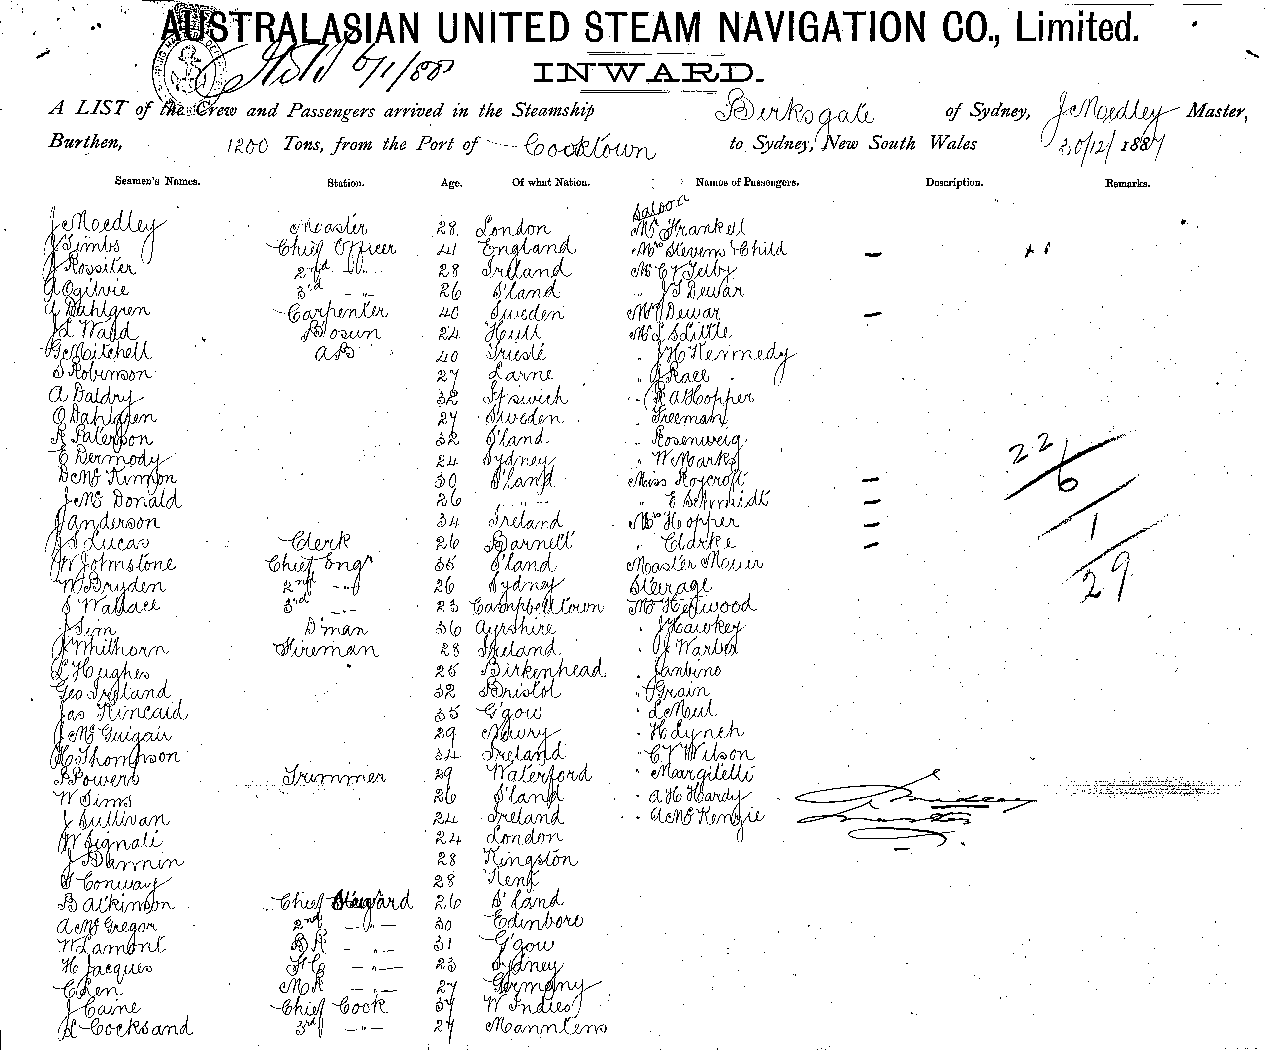 AUSTRALASIAN UNITED STEAM NAVIGATION CO., Limited.
6/1/88
INWARD.
A LIST of the Crew and Passengers arrived in the Steamship Birksgate of Sydney, J Medley Master,
Burthen, 1200 Tons, from the Port of Cooktown to Sydney, New South Wales 30/12/1887
Seamen's Names. Station. Age. Of what Nation. Names of Passengers. Description. Remarks.
Saloon
J Medley Master 28 London Mr Frankell
J Timbs Chief Officer 41 England Mrs Stevens & Child —
J Rossiter 2nd -"- 28 Ireland Mr C V
A Ogilvie 3rd -"- 26 S'land " J S Dewar
A Dahlgren Carpenter 40 Sweden Mrs Dewar —
J L Ward Bosun 24 Hull Mr Little
G Mitchell AB 40 Trieste " J H Kennedy
S Robinson 27 Larne " Race
A Daldry 32 Ipswich " R A Hopper
O Dahlgren 27 Sweden " Freeman
R Paterson 32 S'land " Rosenweig
E Dermody 24 Sydney " W Marks
D McKinnon 30 S'land Miss Roycroft —
J McDonald 26 " E Schmidt —
J Anderson 34 Ireland Mrs Hopper —
J S Lucas Clerk 26 Barnett " Clarke —
W Johnstone Chief Engr 35 S'land Master
W Bryden 2nd -"- 26 Sydney Steerage
J Wallace 3rd -"- 23 Campbelltown Mr Henwood
J Sim D'man 36 Ayrshire " J Hawkey
J Milhorn Fireman 28 Ireland " J
Hughes 25 Birkenhead "
Geo Ireland 32 Bristol " Grain
Jas Kincaid 35 G'gow "
J McGuigair 29 Newry " H Lynch
H Thompson 34 Ireland " C V Wilson
P Powers Trimmer 29 Waterford " Margitelli
W Sims 26 S'land " A H Hardy
J Sullivan 24 Ireland " A McKenzie
W Signali 24 London
J Bannin 28 Kingston
T Conway 28 Kent
B Atkinson Chief Steward 26 S'land
A McGregor 2nd -"- 30 Edinboro
W Lamont BR -"- 31 G'gow
H Jacques FC -"- 23 Sydney
C Ren MR -"- 27 Germany
J Caine Chief Cook 37 W Indies
Cocksand 3rd -"- 27
22
6
1
29
J Medley
Master